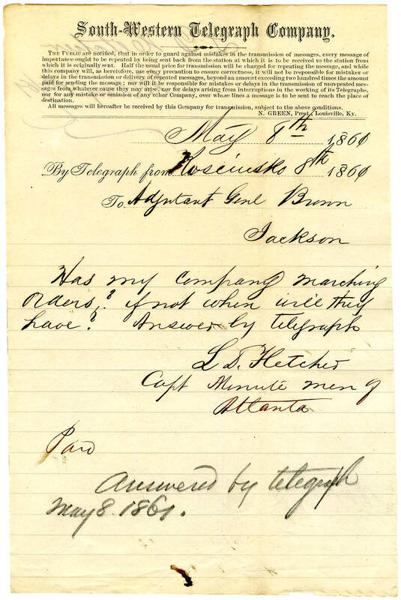 South-Western Telegraph Company.
The Public are notified, that in order to guard against mistakes in the transmission of messages, every message of
importance ought to be repeated by being sent back from the station at which it is to be received to the station from
which it is originally sent. Half the usual price for transmission will be charged for repeating the message, and while
this company will, as heretofore, use every precaution to ensure correctness, it will not be responsible for mistakes or
delays in the transmission or delivery of repeated messages, beyond an amount exceeding two hundred times the amount
paid for sending the message; nor will it be responsible for mistakes or delays in the transmission of unrepeated messages
from whatever cause they may arise, nor for delays arising from interruptions in the working of its Telegraphs,
nor for any mistake or omission of any other Company, over whose lines a message is to be sent to reach the place of
destination.
All messages will hereafter be received by this Company for transmission, subject to the above conditions.
N. GREEN, Prest., Louisville, Ky.
May 8th 1860
By Telegraph from Kosciusko 8th 1860
To Adjutant Genl Brown
Jackson
Has my company marching
orders? if not when will they
have? Answer by telegraph
L D. Fletcher
Capt Minute men of
Attanta
Paid
Answered by telegraph
May 8. 1861.